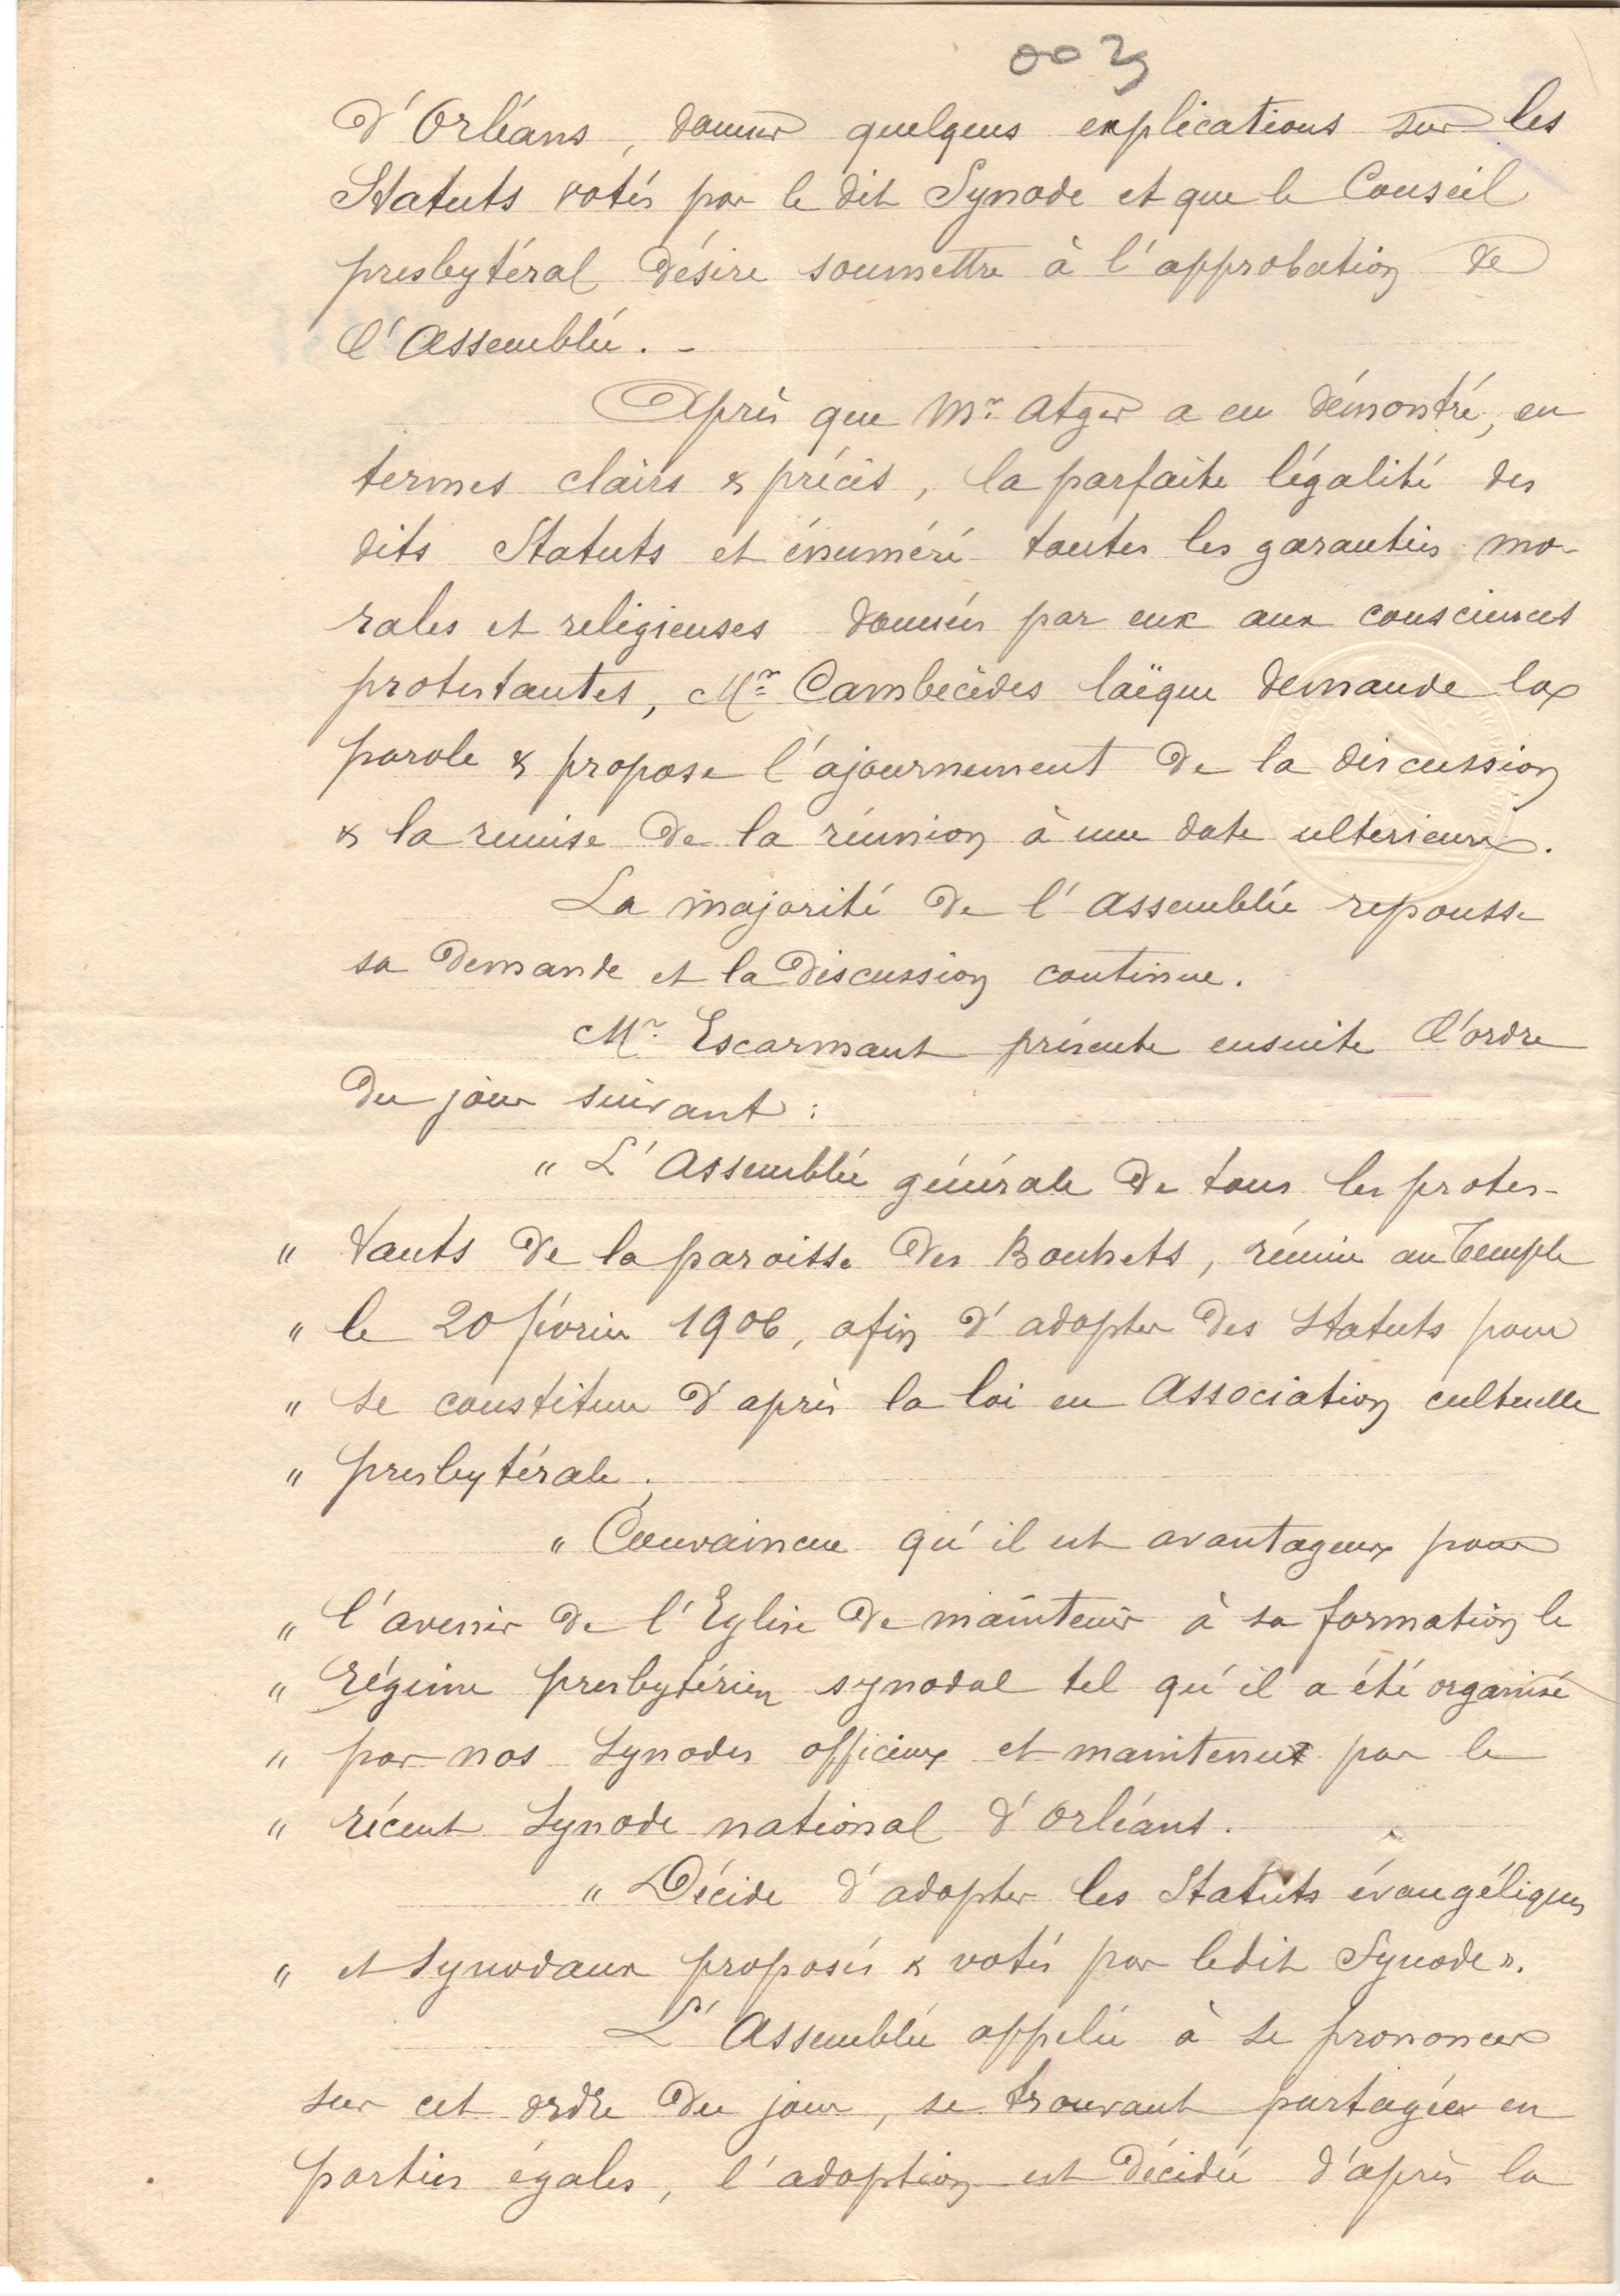 003
d'Orléans, donner quelques explications sur les
Statuts votés par le dit Synode et que le Conseil
presbytéral désire soumettre à l'approbation de
l'Assemblée. -
Après que Mr. Atger a eu démontré, en
termes clairs & précis, la parfaite légalité des
dits Statuts et énuméré toutes les garanties mo-
rales et religieuses données par eux aux consciences
protestantes, Mr. Cambécèdes laïque demande la
parole & propose l'ajournement de la discussion
& la remise de la réunion à une date ultérieure.
La majorité de l'Assemblée repousse
sa demande et la discussion continue.
Mr. Escarmant présente ensuite l'ordre
du jour suivant :
" L'Assemblée générale de tous les protes-
" tants de la paroisse des Bouhets, réunie au Temple
" le 20 février 1906, afin d'adopter des Statuts pour
" se constituer d'après la loi en Association cultuelle
" presbytérale ;
" Convaincue qu'il est avantageux pour
" l'avenir de l'Eglise de maintenir à sa formation le
" régime presbytérien synodal tel qu'il a été organisé
" par nos Synodes officieux et maintenu par le
" récent Synode national d'Orléans.
" Décide d'adopter les Statuts évangéliques
" et Synodaux proposés & votés par ledit Synode ".
L'Assemblée appelée à se prononcer
sur cet ordre du jour, se trouvant partagée en
parties égales, l'adoption est décidée d'après la